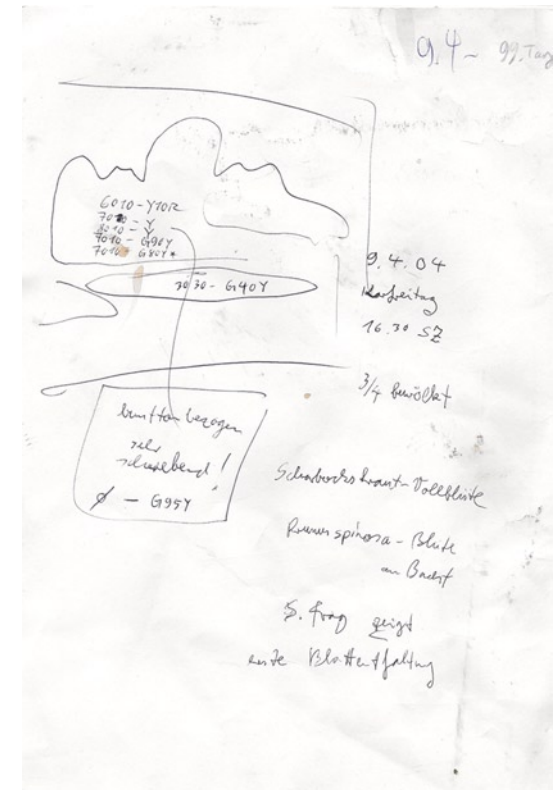 9.4 - 99. Tag
6010-Y10R
7010 - Y
8010 - Y
7010 - G90Y
7010 - G80Y*
3030 - G40Y
9.4.04
Karfreitag
16.30 SZ
3/4 bewölkt
bunttonbezogen
sehr
schwebend!
Ø - G95Y
Scharbockskraut-Vollblüte
spinosa-Blüte
am
S. frag zeigt
erste Blattentfaltung